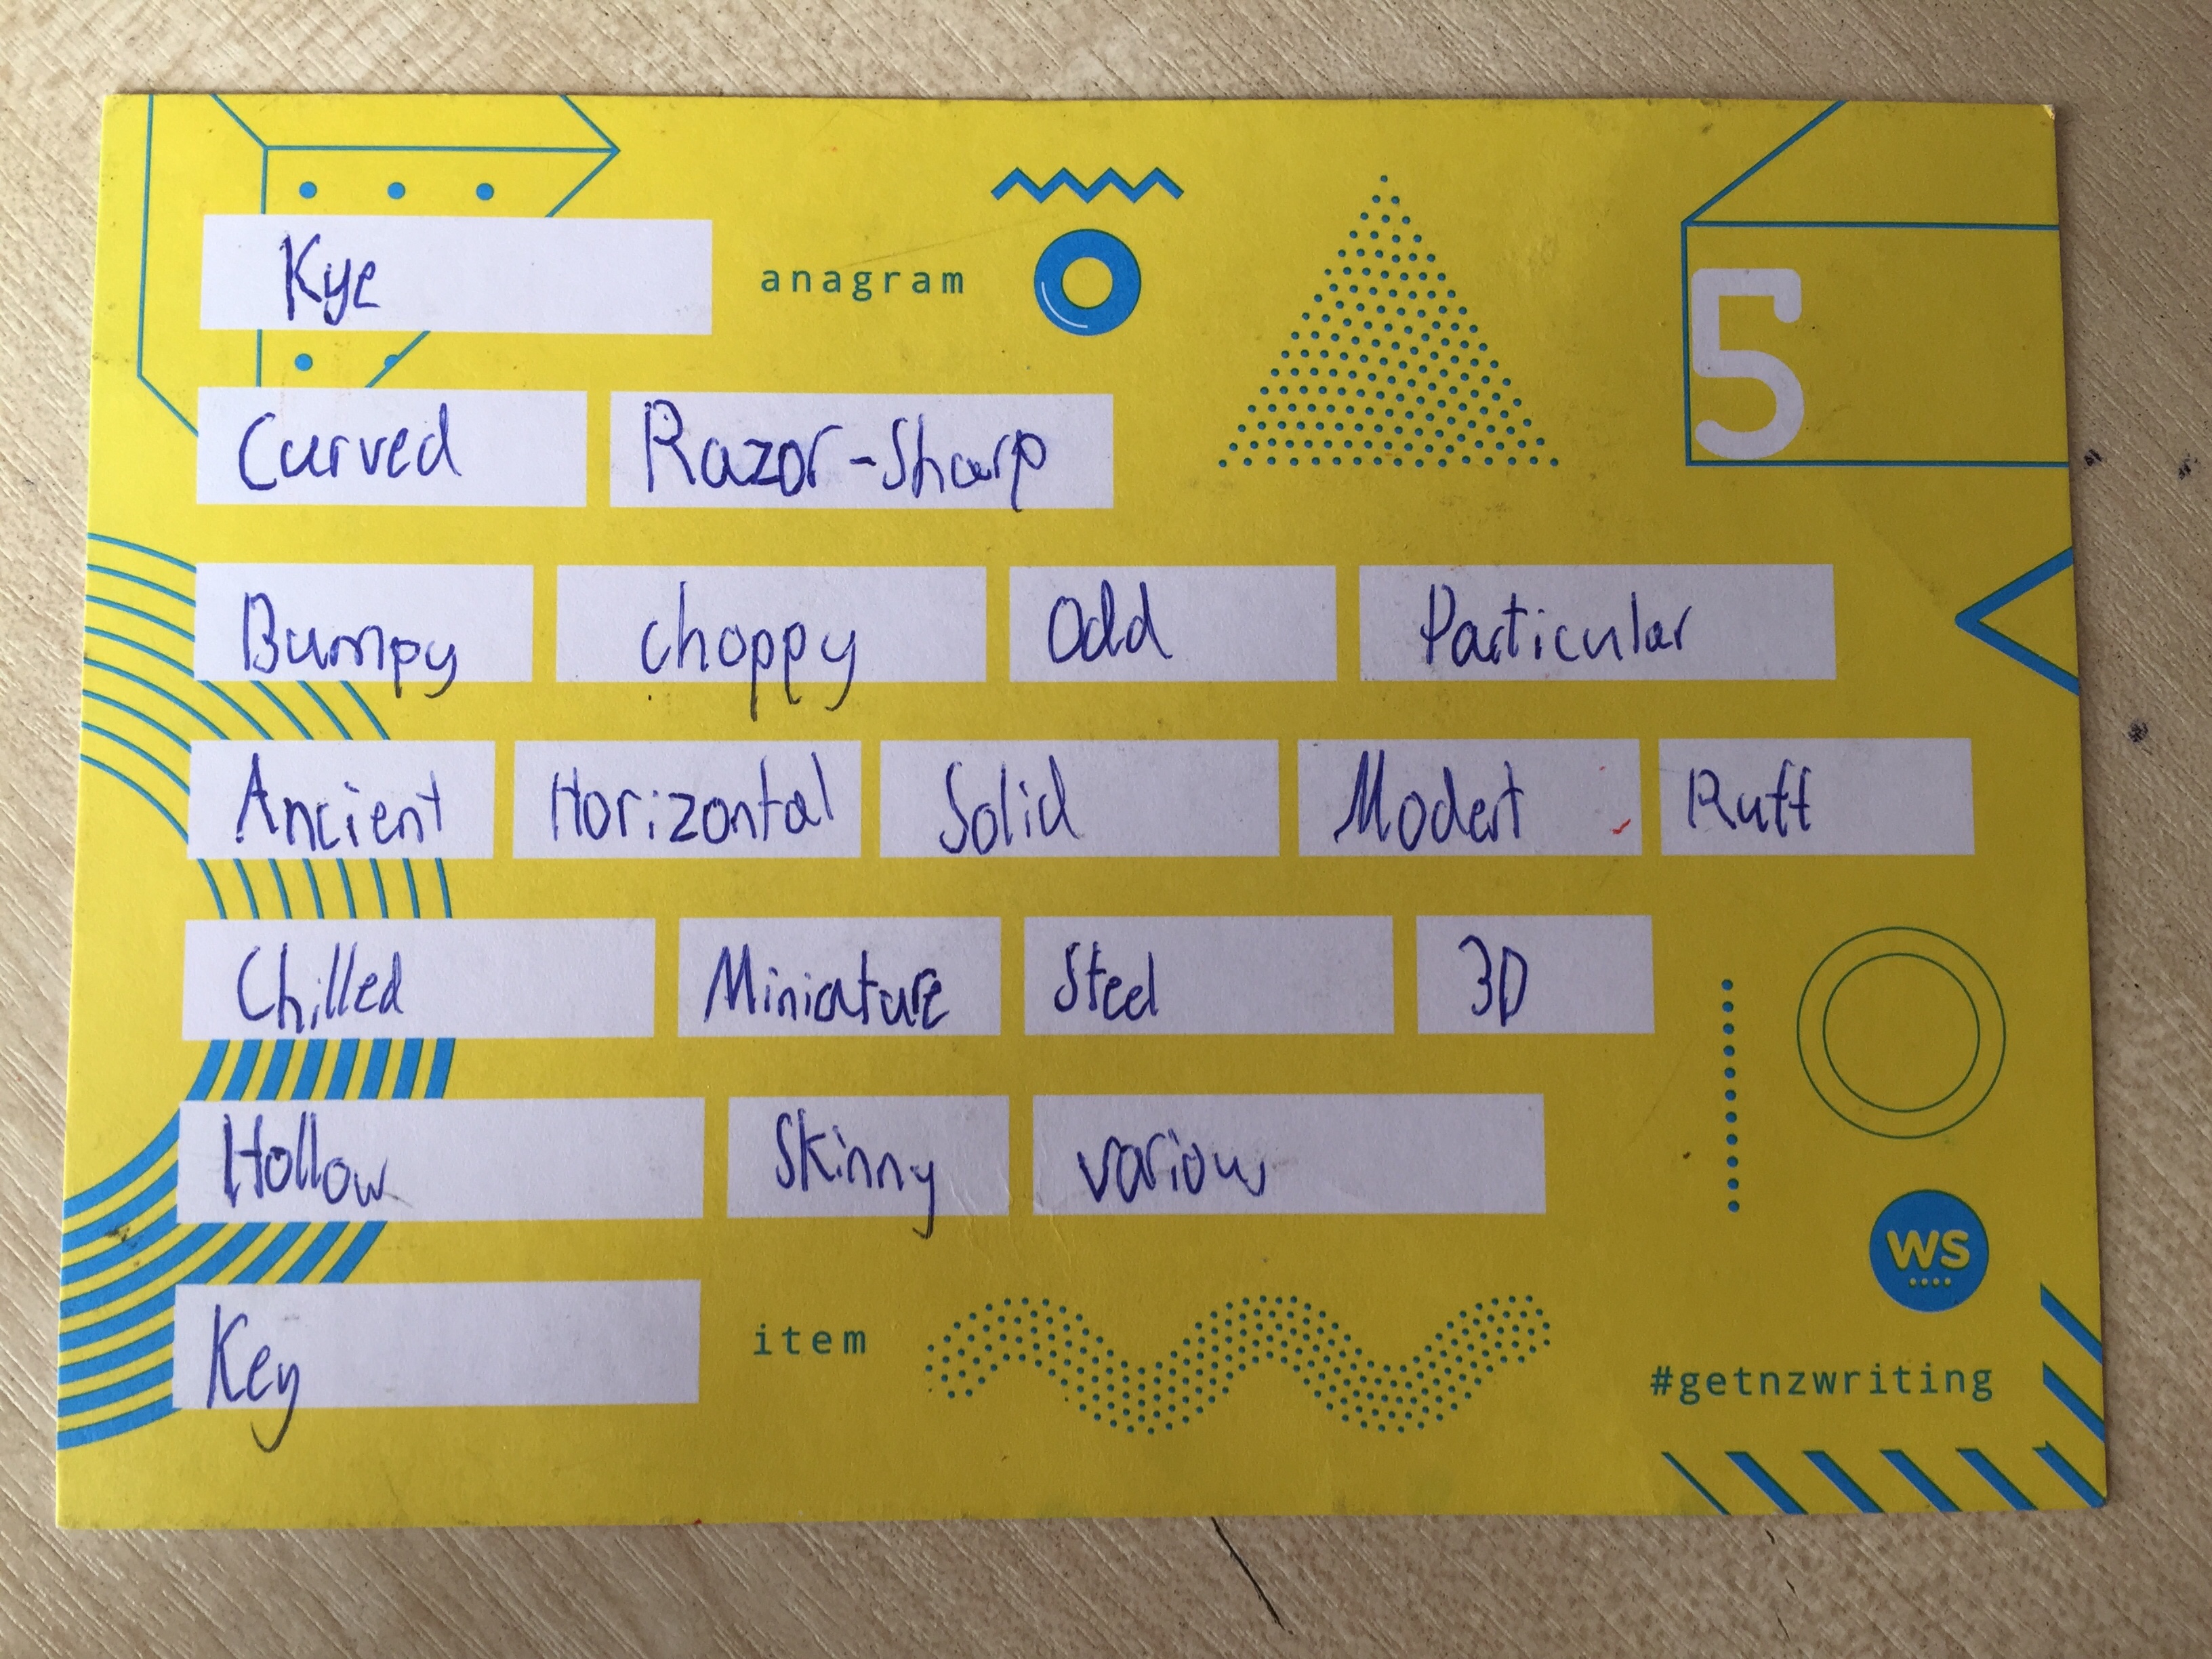 Kye anagram 5
Curved Razor-Sharp
Bumpy choppy Odd Particular
Ancient Horizontal Solid Modert Ruff
Chilled Miniature Steel 3D
Hollow Skinny various
WS
Key item
#getnzwriting